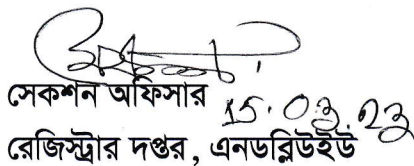 সেকশন অফিসার 15.03.23
রেজিস্ট্রার দপ্তর, এনডব্লিউইউ